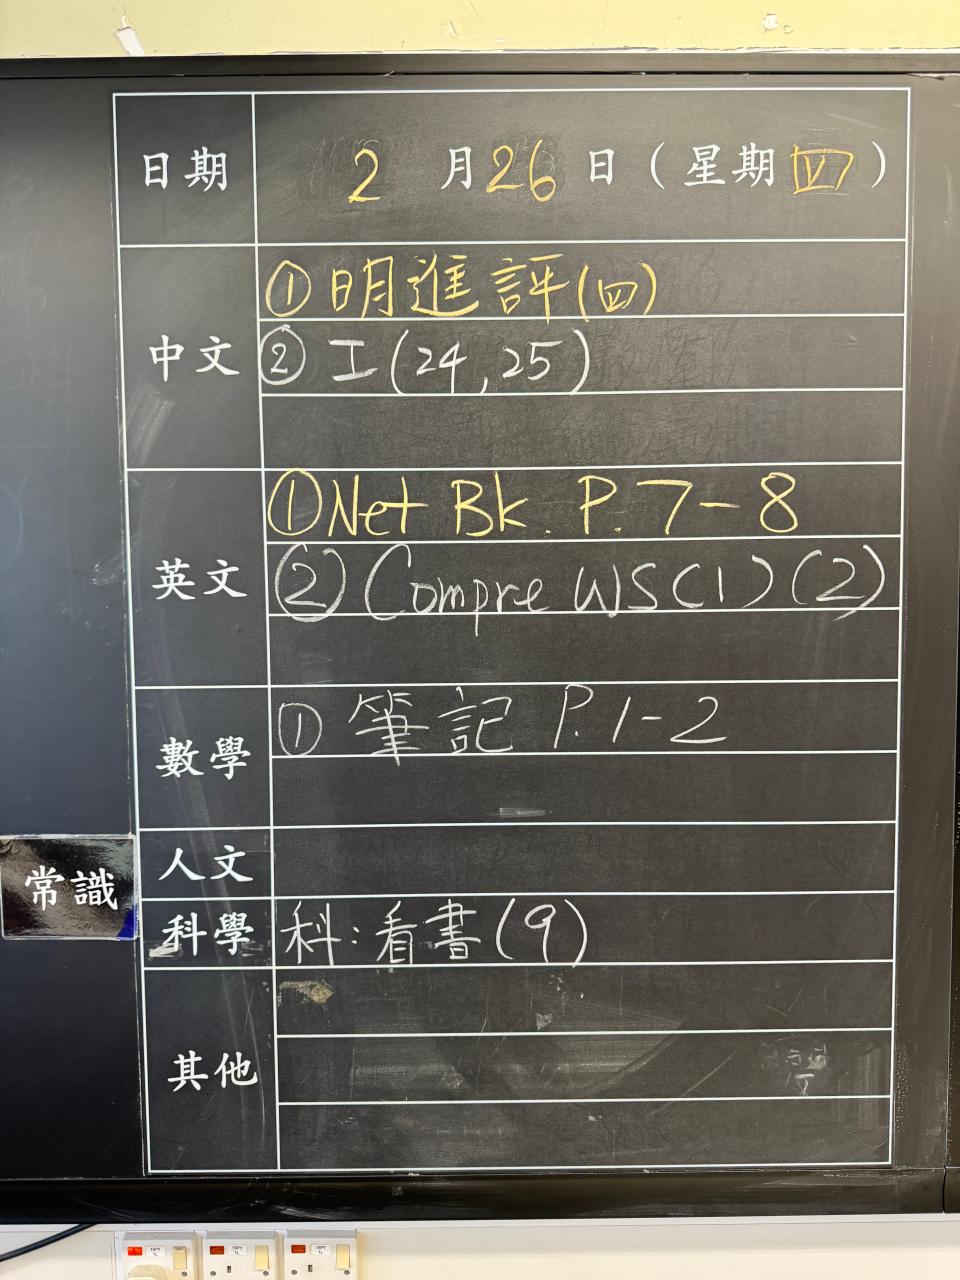 日期 2月26日(星期四)
中文 ①明進評(四)
② 工(24,25)
英文 ①Net Bk. P. 7-8
② Compre WS(1)(2)
數學 ① 筆記 P.1-2
人文
常識
科學 科:看書(9)
其他